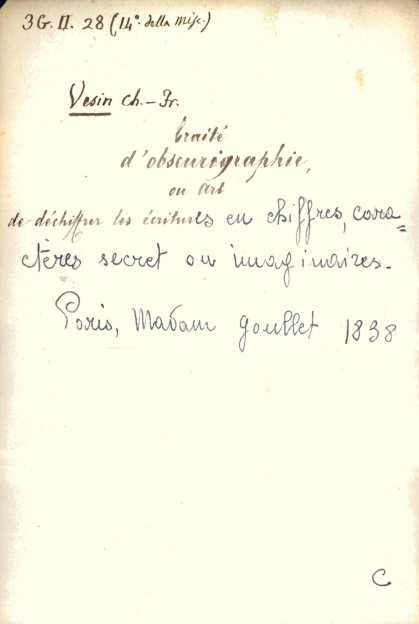 3G. II. 28 (14º della Misc.)
Vesin Ch.-Fr.
traité
d'obscurigraphie,
ou art
de déchiffrer les écritures en chiffres, cara=
ctères secret ou imaginaires.
Paris, Madam Goullet 1838
C